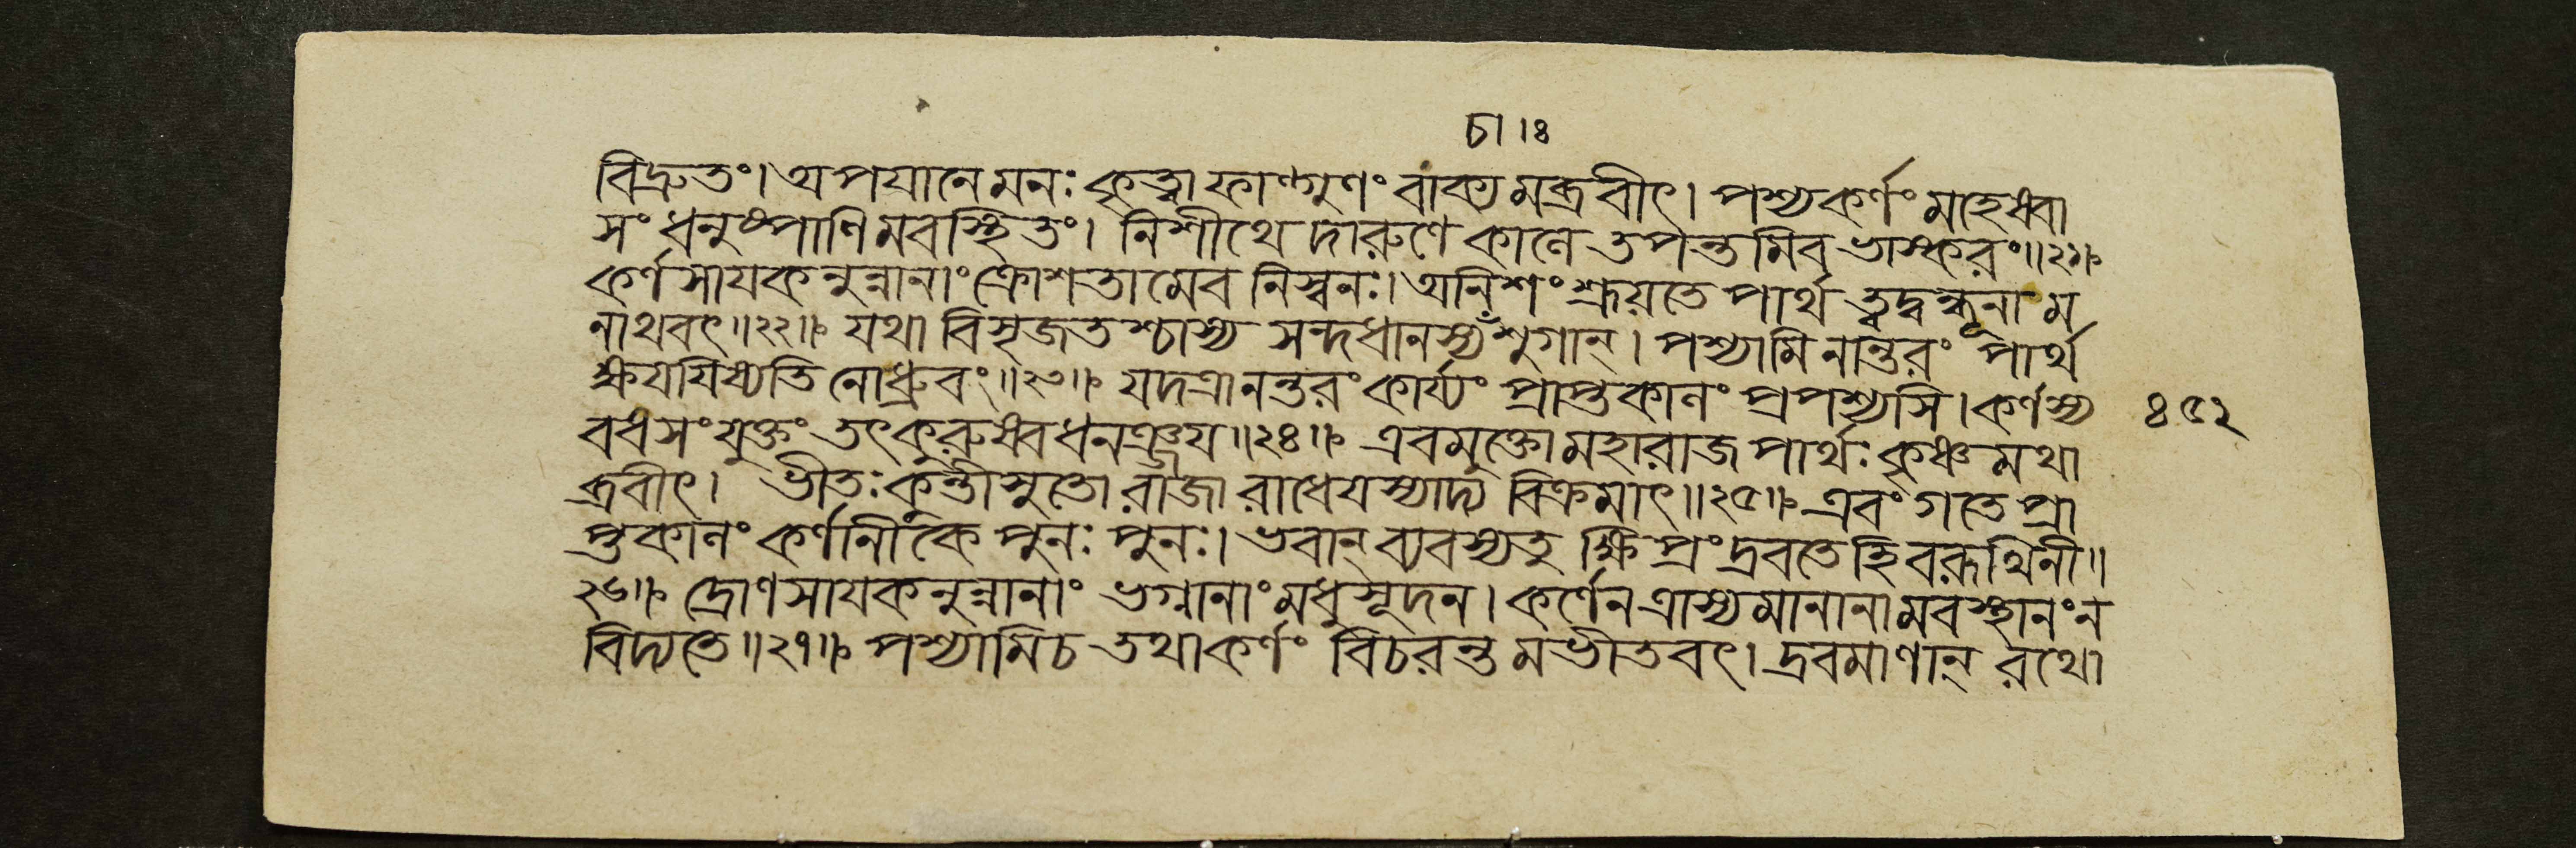 চা । ৪
বিদ্রুতং। অপযানে মনঃ কৃত্বা ফাল্গুণং বাক্যমব্রবীৎ। পশ্য কর্ণং মহেষ্বা
সং ধনুষ্পাণিমবস্থিতং। নিশীথে দারুণে কালে তপন্তমিব ভাস্করং॥২১॥
কর্ণসাযকনুন্নানাং ক্রোশতামেব নিস্বনঃ। অনিশং শ্রূয়তে পার্থ ত্বদ্বন্ধূনাম
নাথবৎ॥২২॥ যথা বিসৃজতশ্চাস্য সন্দধানস্য চাশুগান্। পশ্যামি নান্তরং পার্থ
ক্ষযযিষ্যতি নো ধ্রুবং॥২৩॥ যদত্রানন্তরং কার্য্যং প্রাপ্তকালং প্রপশ্যসি। কর্ণস্য
বধসংযুক্তং তৎকুরুষ্ব ধনঞ্জয॥২৪॥ এবমুক্তো মহারাজ পার্থঃ কৃষ্ণমথা
ব্রবীৎ। ভীতঃ কুন্তীসুতো রাজা রাধেযস্যাদ্য বিক্রমাৎ॥২৫॥ এবং গতে প্রা
প্তকালং কর্ণানীকে পুনঃ পুনঃ। ভবান্ ব্যবস্যতু ক্ষিপ্রং দ্রবতে হি বরূথিনী॥
২৬॥ দ্রোণসাযকনুন্নানাং ভগ্নানাং মধুসূদন। কর্ণেন ত্রাস্যমানানামবস্থানং ন
বিদ্যতে॥২৭॥ পশ্যামি চ তথা কর্ণং বিচরন্তমভীতবৎ। দ্রবমাণান্ রথো
৪৫২